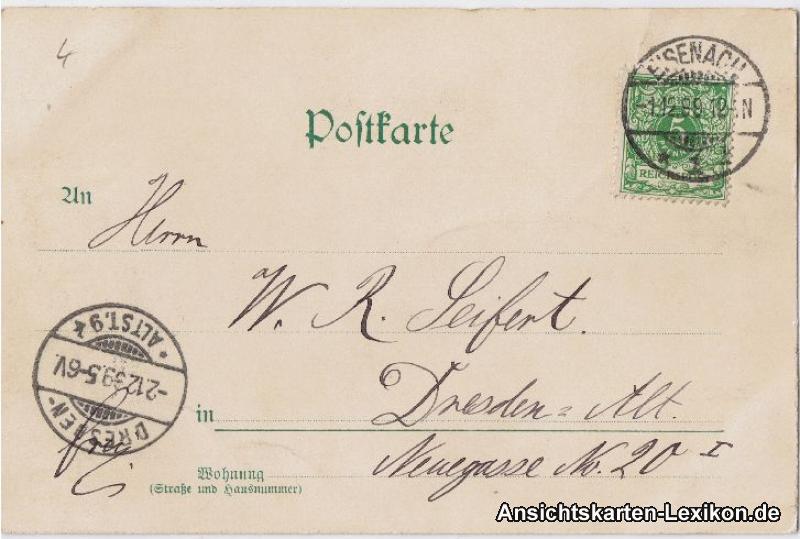 4
EISENACH
-1.12.99.12-1N
* 1
5
REICHSPOST
Postkarte
An
Herrn
W. R. Seifert.
in Dresden=Alt.
Neuegasse No. 20 I
Wohnung
(Straße und Hausnummer)
DRESDEN-
-2.12.99.5-6V.
*ALTST.9
Ansichtskarten-Lexikon.de